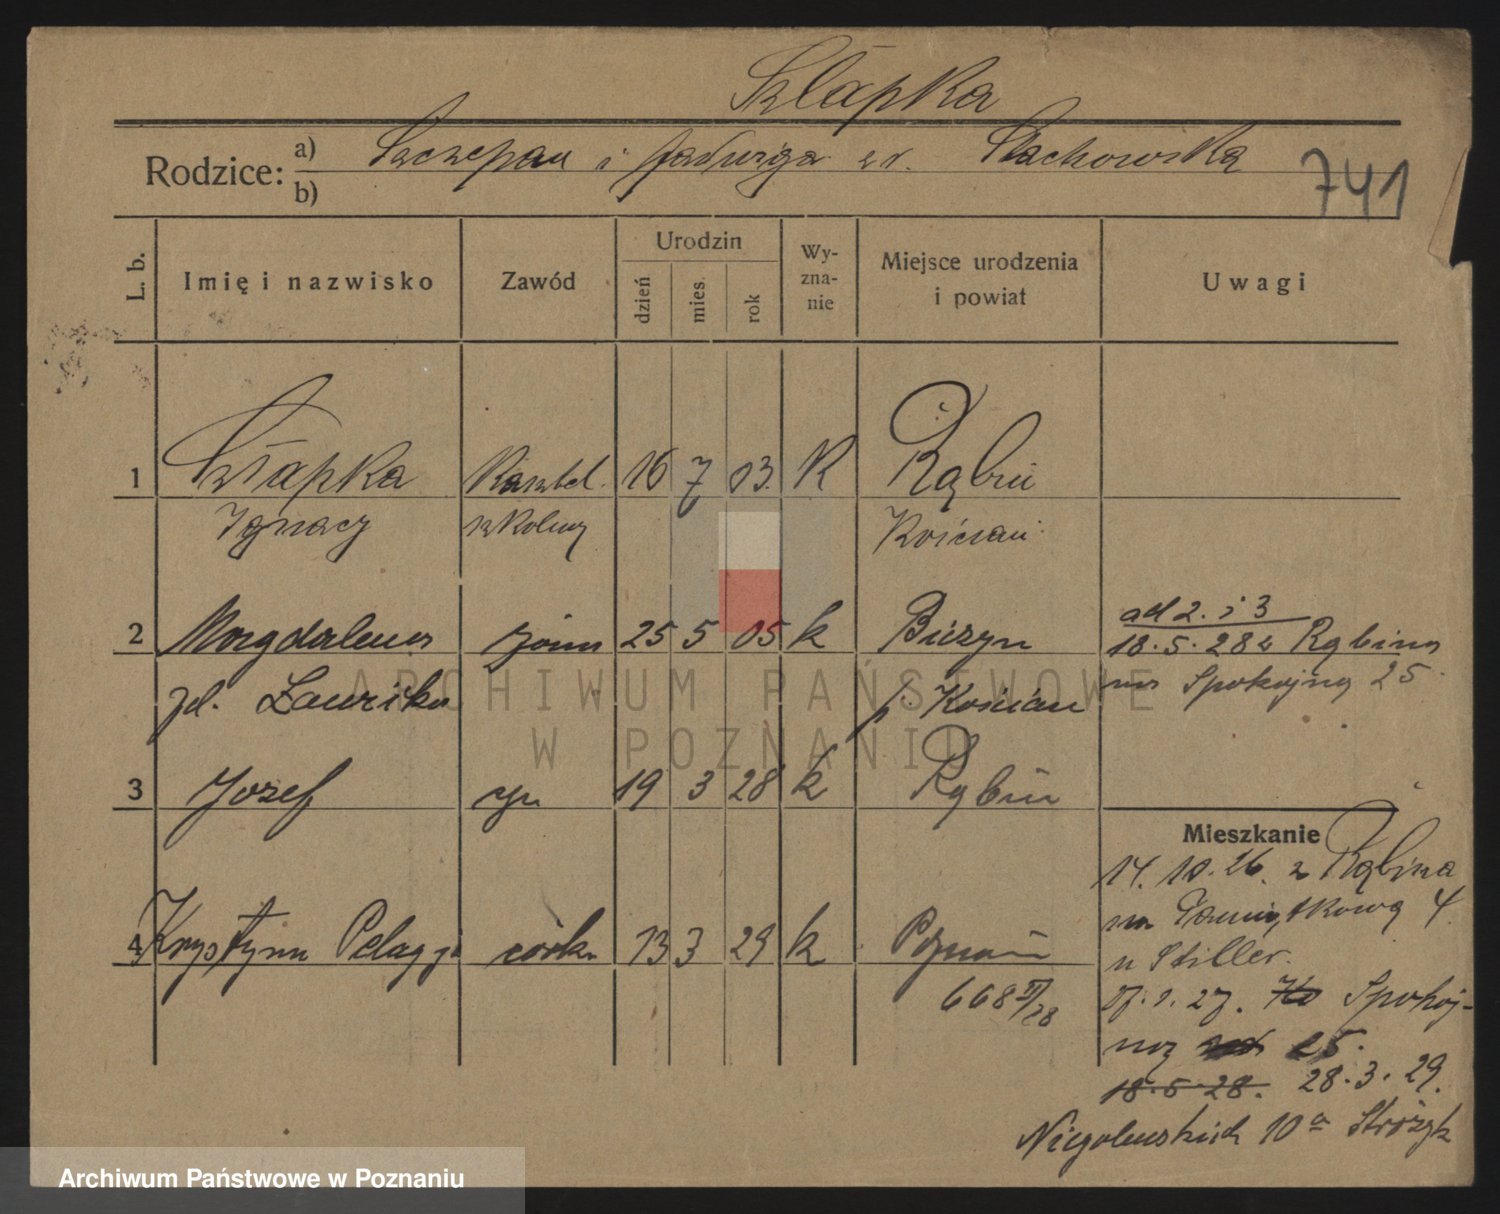 Szłapka
Rodzice: a) Szczepan i Jadwiga z r. Stachowska
b)
741
L. b.
Imię i nazwisko
Zawód
Urodzin
dzień
mies.
rok
Wy-
zna-
nie
Miejsce urodzenia
i powiat
Uwagi
1 Szłapka Kasztel. 16 7 03. K Rąbiń
Ignacy szkolny Kościan
2 Magdalena żona 25 5 05 k
zd. p. Kościan
ad 2. i 3
18.5.28 z Rąbina
na Spokojną 25.
3 Józef syn 19 3 28 k Rąbiń
4 Krystyna Pelagja córka 13 3 29 k Poznań
668
Mieszkanie
14. 10. 26. z Rąbina
na Pamiątkową 4
u Stiller.
27. Spokoj-
25.
18.5.28. 28.3.29.
Niegolewskich 10a
ARCHIWUM PAŃSTWOWE
W POZNANIU
Archiwum Państwowe w Poznaniu